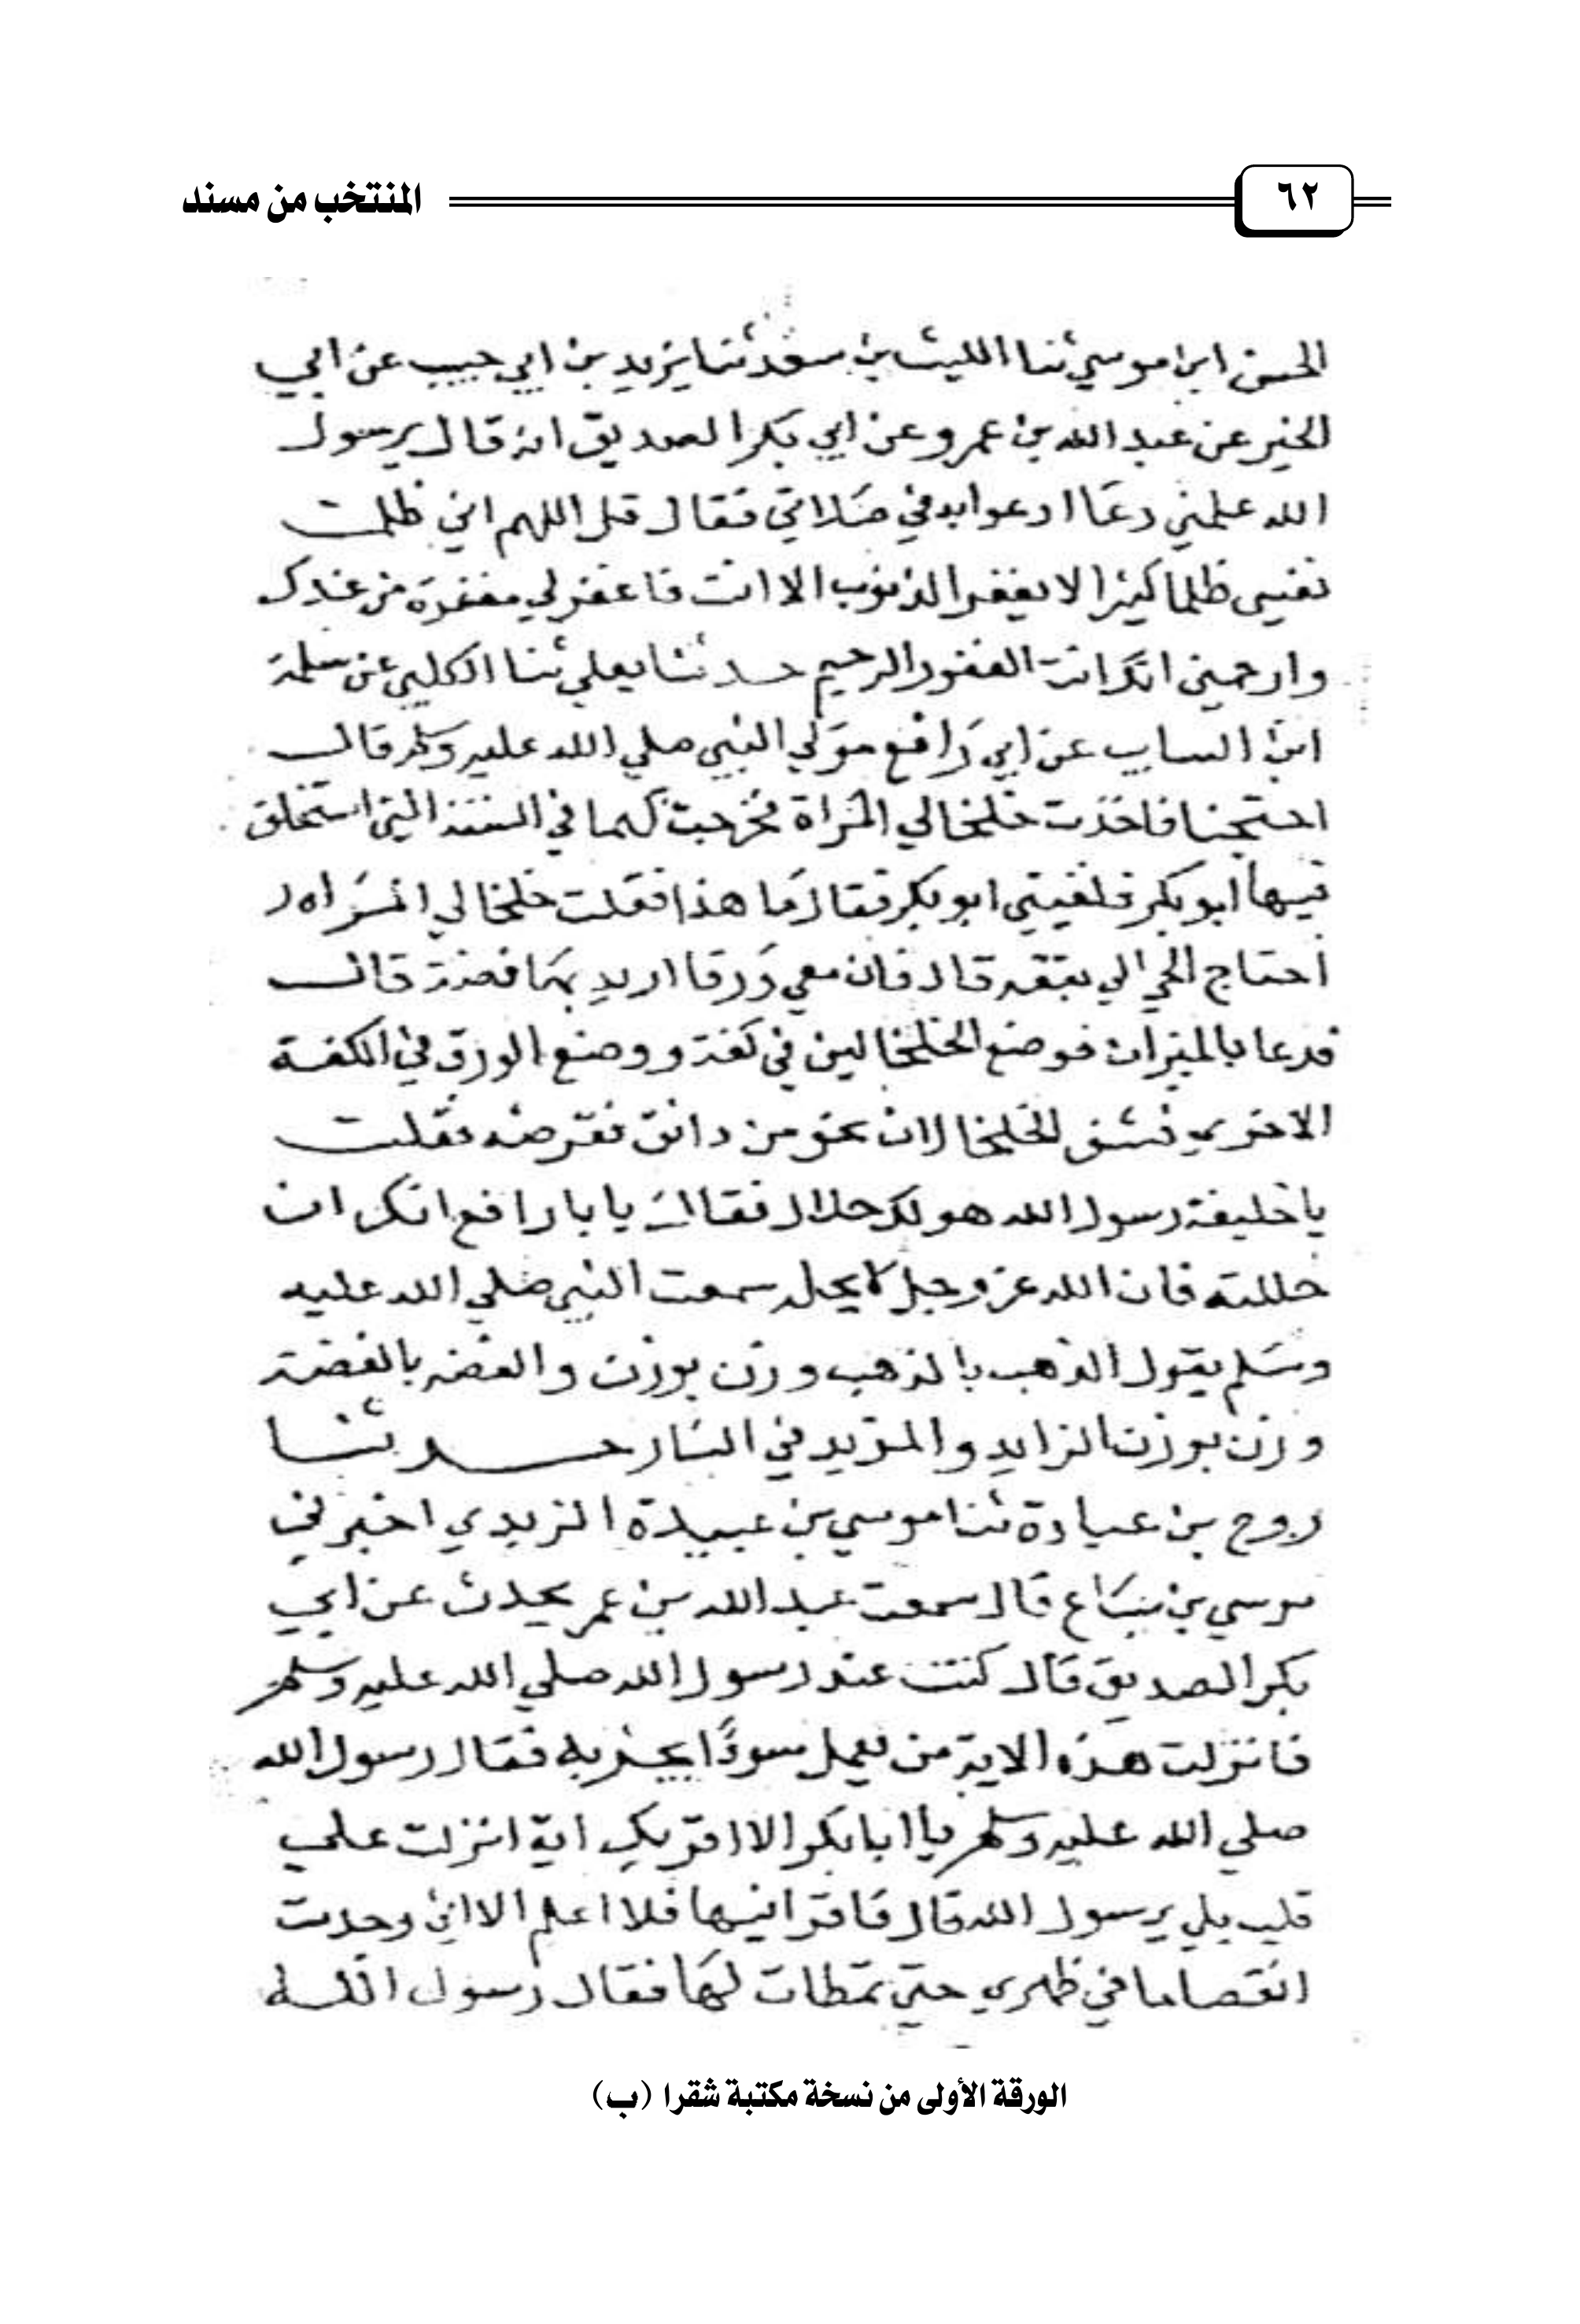 ٦٢ المنتخب من مسند
الحسن ابن موسي ثنا الليث بن سعد ثنا يزيد بن ابي حبيب عن ابي
الخير عن عبد الله بن عمرو عن ابي بكر الصديق انه قال يرسول
الله علمني دعا ادعوا به في صلاتي فقال قل اللهم اني ظلمت
نفسي ظلما كثيرا لا يغفر الذنوب الا انت فاغفر لي مغفرة من عندك
وارحمني انك انت الغفور الرحيم حدثنا يعلي ثنا الكلبي عن سلمة
ابن السايب عن ابي رافع مولي النبي صلي الله عليه وسلم قال
احتجنا فاخذت خلخالي المراة فخرجت بهما في السنة التي استخلف
فيها ابو بكر فلقيني ابو بكر فقال ما هذا فقلت خلخالي المراه
احتاج الحي الي نفقه قال فان معي ورقا اريد بها فضة قال
فدعا بالميزان فوضع الخلخالين في كفة ووضع الورق في الكفة
الاخري فشف الخلخالان نحو من دانق فقرضه فقلت
يا خليفة رسول الله هو لك حلال فقال يا با رافع انك ان
حللته فان الله عز وجل لا يحله سمعت النبي صلي الله عليه
وسلم يقول الذهب بالذهب وزن بوزن والفضه بالفضة
وزن بوزن الزايد والمزيد في النار حدثنا
روح بن عبادة ثنا موسي بن عبيدة الزبدي اخبرني
موسي بن سباع قال سمعت عبد الله بن عمر يحدث عن ابي
بكر الصديق قال كنت عند رسول الله صلي الله عليه وسلم
فانزلت هذه الاية من يعمل سوءًا يجز به فقال رسول الله
صلي الله عليه وسلم يا ابا بكر الا اقريك اية انزلت علي
قلت بلي يرسول الله قال فاقرانيها فلا اعلم الا اني وجدت
انقصاما في ظهري حتي تمطات لها فقال رسول الله
الورقة الأولى من نسخة مكتبة شقرا (ب)